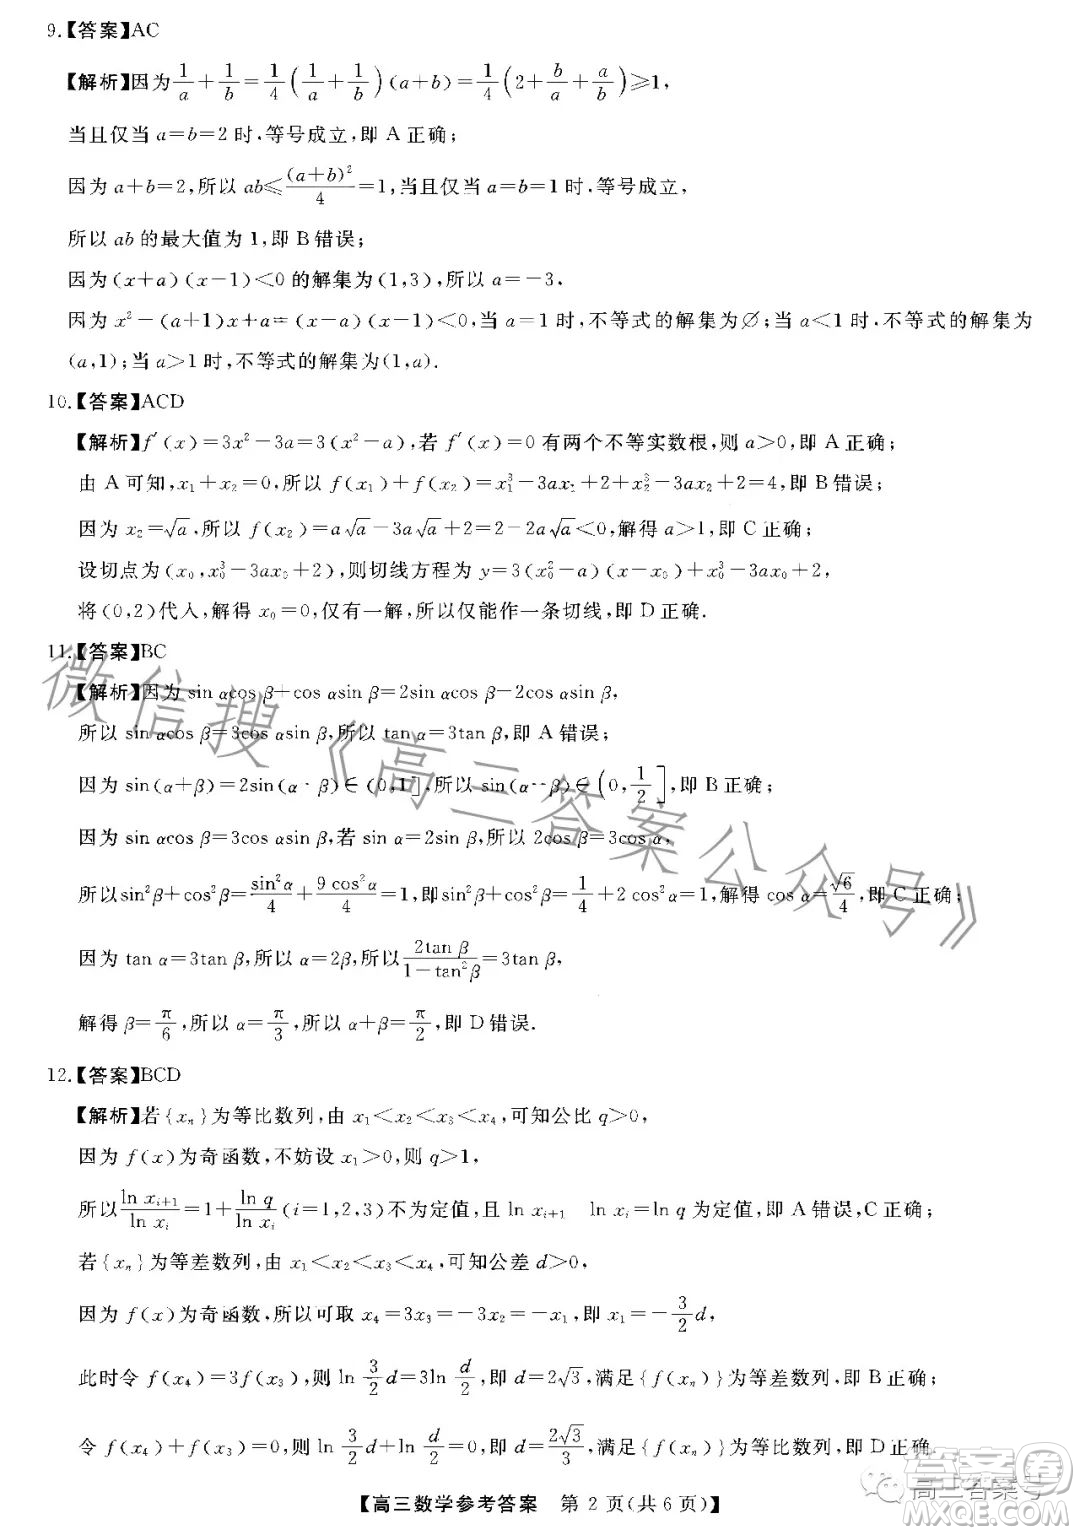 9.【答案】AC
【解析】因为1/a+1/b=1/4(1/a+1/b)(a+b)=1/4(2+b/a+a/b)≥1,
当且仅当 a=b=2 时,等号成立,即 A 正确;
因为 a+b=2,所以 ab≤(a+b)²/4=1,当且仅当 a=b=1 时,等号成立,
所以 ab 的最大值为 1,即 B 错误;
因为(x+a)(x-1)<0 的解集为(1,3),所以 a=-3.
因为 x²-(a+1)x+a=(x-a)(x-1)<0,当 a=1 时,不等式的解集为∅;当 a<1 时,不等式的解集为
(a,1);当 a>1 时,不等式的解集为(1,a).
10.【答案】ACD
【解析】f′(x)=3x²-3a=3(x²-a),若 f′(x)=0 有两个不等实数根,则 a>0,即 A 正确;
由 A 可知,x₁+x₂=0,所以 f(x₁)+f(x₂)=x₁³-3ax₁+2+x₂³-3ax₂+2=4,即 B 错误;
因为 x₂=√a,所以 f(x₂)=a√a-3a√a+2=2-2a√a<0,解得 a>1,即 C 正确;
设切点为(x₀,x₀³-3ax₀+2),则切线方程为 y=3(x₀²-a)(x-x₀)+x₀³-3ax₀+2,
将(0,2)代入,解得 x₀=0,仅有一解,所以仅能作一条切线,即 D 正确.
11.【答案】BC
【解析】因为 sin αcos β+cos αsin β=2sin αcos β-2cos αsin β,
所以 sin αcos β=3cos αsin β,所以 tan α=3tan β,即 A 错误;
因为 sin(α+β)=2sin(α-β)∈(0,1],所以 sin(α-β)∈(0,1/2],即 B 正确;
因为 sin αcos β=3cos αsin β,若 sin α=2sin β,所以 2cos β=3cos α,
所以sin²β+cos²β=sin²α/4+9cos²α/4=1,即sin²β+cos²β=1/4+2cos²α=1,解得 cos α=√6/4,即 C 正确;
因为 tan α=3tan β,所以 α=2β,所以2tan β/(1-tan²β)=3tan β,
解得 β=π/6,所以 α=π/3,所以 α+β=π/2,即 D 错误.
12.【答案】BCD
【解析】若{xₙ}为等比数列,由 x₁<x₂<x₃<x₄,可知公比 q>0,
因为 f(x)为奇函数,不妨设 x₁>0,则 q>1,
所以ln xᵢ₊₁/ln xᵢ=1+ln q/ln xᵢ(i=1,2,3)不为定值,且 ln xᵢ₊₁ ln xᵢ=ln q为定值,即 A 错误,C 正确;
若{xₙ}为等差数列,由 x₁<x₂<x₃<x₄,可知公差 d>0,
因为 f(x)为奇函数,所以可取 x₄=3x₃=-3x₂=-x₁,即 x₁=-3/2d,
此时令 f(x₄)=3f(x₃),则 ln 3/2d=3ln d/2,即 d=2√3,满足{f(xₙ)}为等差数列,即 B 正确;
令 f(x₄)+f(x₃)=0,则 ln 3/2d+ln d/2=0,即 d=2√3/3,满足{f(xₙ)}为等比数列,即 D 正确.
【高三数学参考答案 第 2 页(共 6 页)】
微信搜《高三答案公众号》
高三答案号
答案圈
MXQE.COM